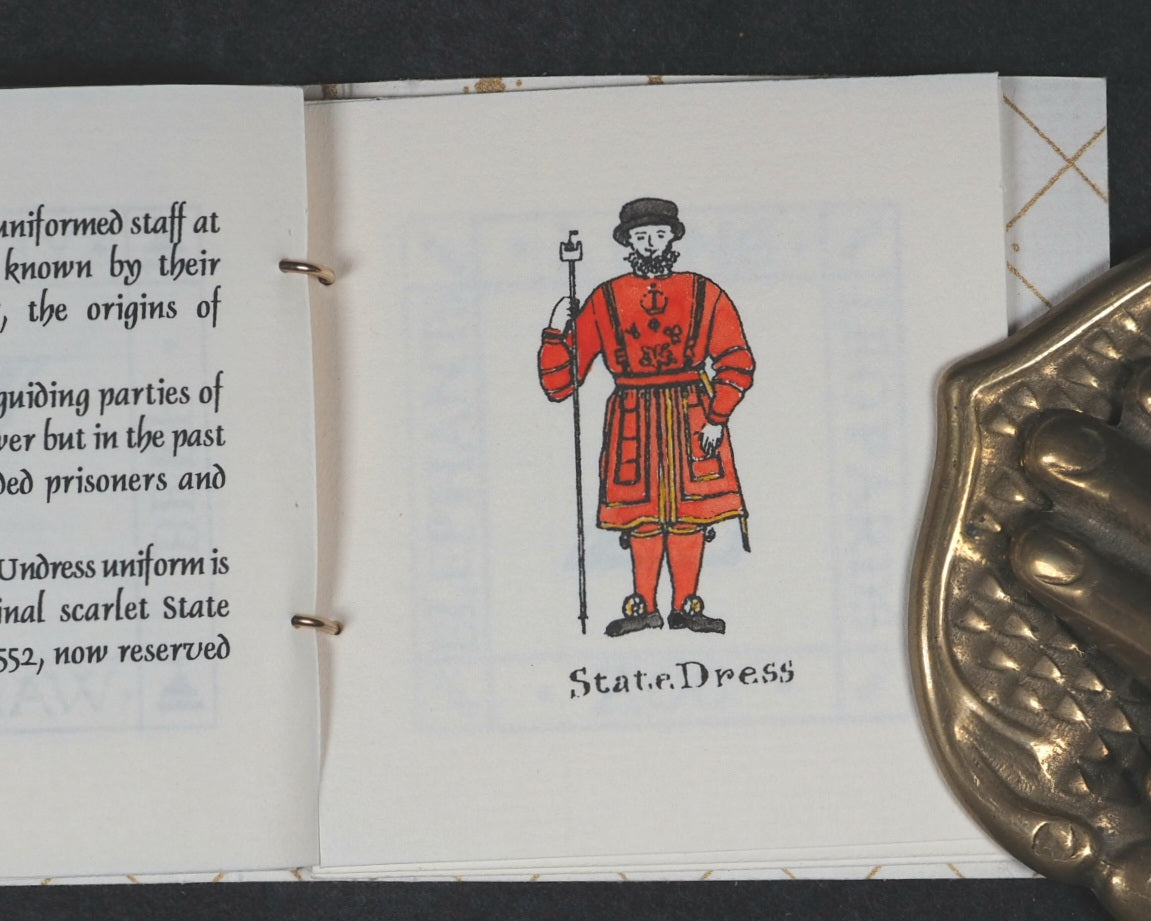 uniformed staff at
known by their
, the origins of
guiding parties of
but in the past
prisoners and
Undress uniform is
scarlet State
552, now reserved
State Dress